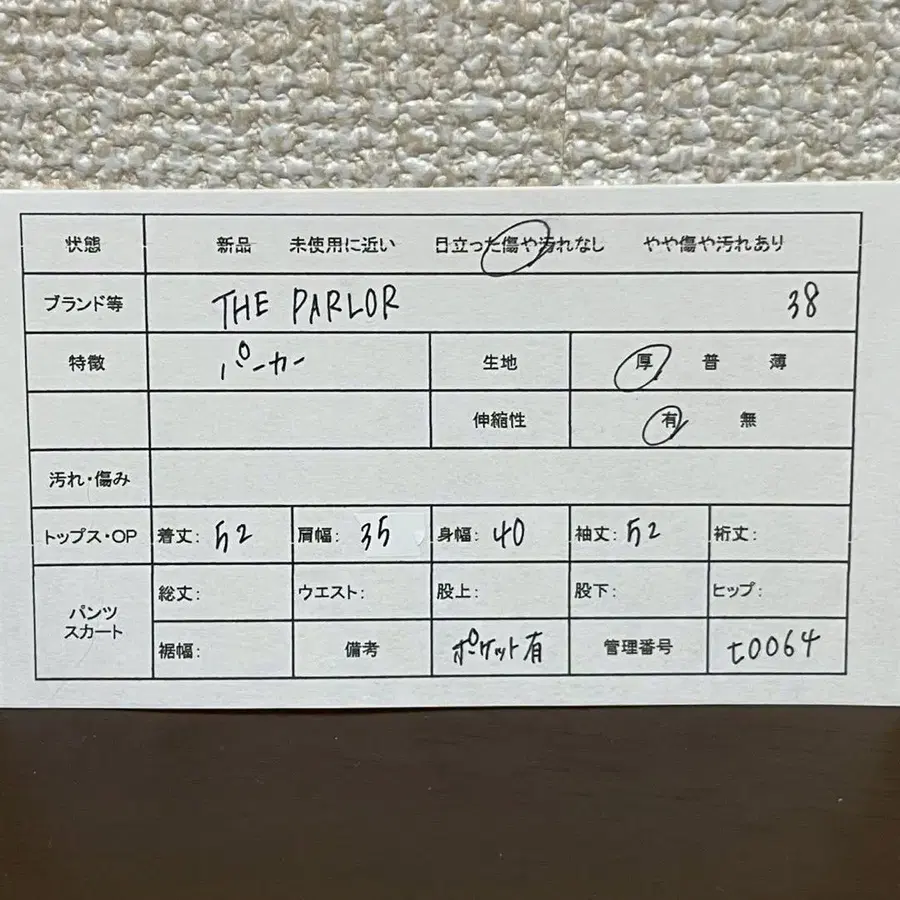 状態 新品 未使用に近い 目立った傷や汚れなし やや傷や汚れあり
ブランド等 THE PARLOR 38
特徴 パーカー 生地 厚 普 薄
伸縮性 有 無
汚れ・傷み
トップス・OP 着丈: 52 肩幅: 35 身幅: 40 袖丈: 52 裄丈:
パンツ スカート 総丈: ウエスト: 股上: 股下: ヒップ:
裾幅: 備考 ポケット有 管理番号 t0064